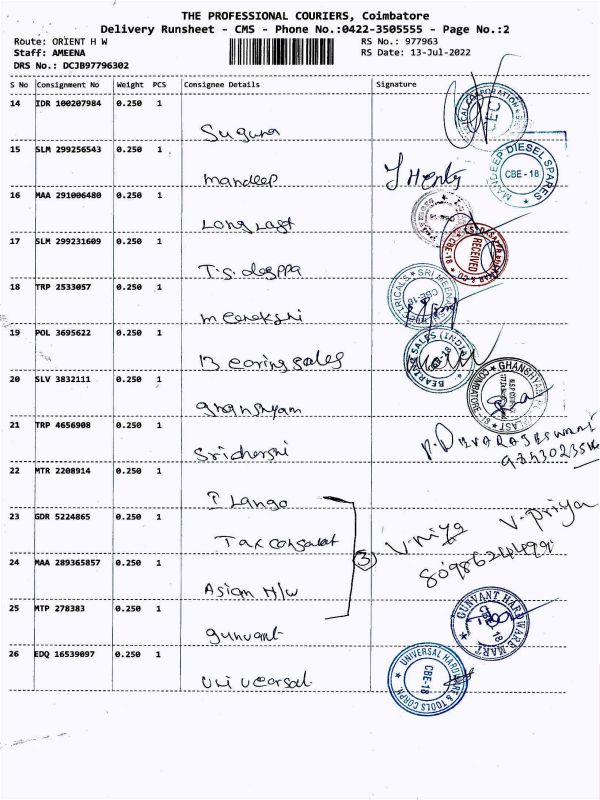 THE PROFESSIONAL COURIERS, Coimbatore
Delivery Runsheet - CMS - Phone No.:0422-3505555 - Page No.:2
Route: ORIENT H W RS No.: 977963
Staff: AMEENA RS Date: 13-Jul-2022
DRS No.: DCJB97796302
S No Consignment No Weight PCS Consignee Details Signature
14 IDR 100207984 0.250 1
Suguna
15 SLM 299256543 0.250 1
mandeep
MANDEEP DIESEL SPARES CBE-18
16 MAA 291006480 0.250 1
Long Last
17 SLM 299231609 0.250 1
RECEIVED CBE-18
18 TRP 2533057 0.250 1
meenakshi
19 POL 3695622 0.250 1
Bearing sales
BEARING SALES (INDIA)
20 SLV 3832111 0.250 1
ghanshyam
21 TRP 4656908 0.250 1
22 MTR 2208914 0.250 1
23 GDR 5224865 0.250 1
3
V-priya
24 MAA 289365857 0.250 1
Asian H/W
25 MTP 278383 0.250 1
gunvant
GUNVANT HARDWARE MART
26 EDQ 16539097 0.250 1
universal
UNIVERSAL HARDWARE & TOOLS CORPN CBE-18